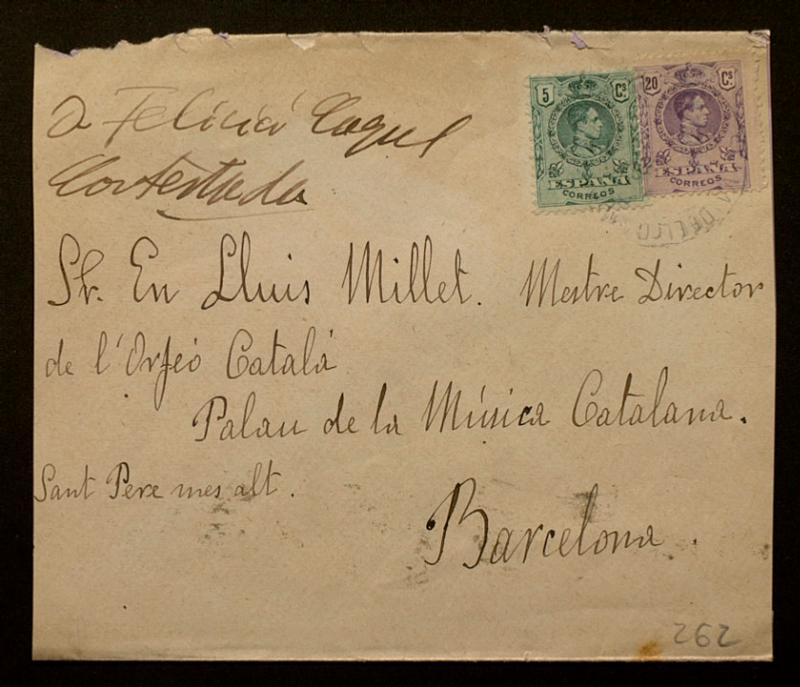 a Felicià
Contestada
5 Cs
ESPAÑA
CORREOS
20 Cs
ESPAÑA
CORREOS
Sr. En Lluis Millet. Mestre Director
de l'Orfeó Català
Palau de la Música Catalana.
Sant Pere mes alt.
Barcelona.
262